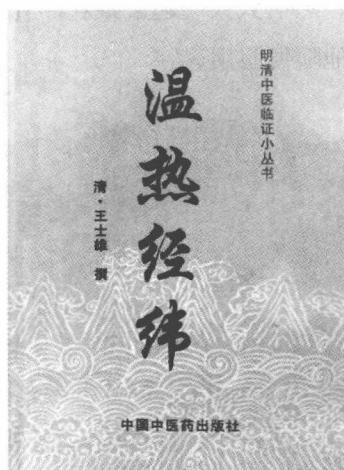 明清中医临证小丛书
温热经纬
清·王士雄 撰
中国中医药出版社